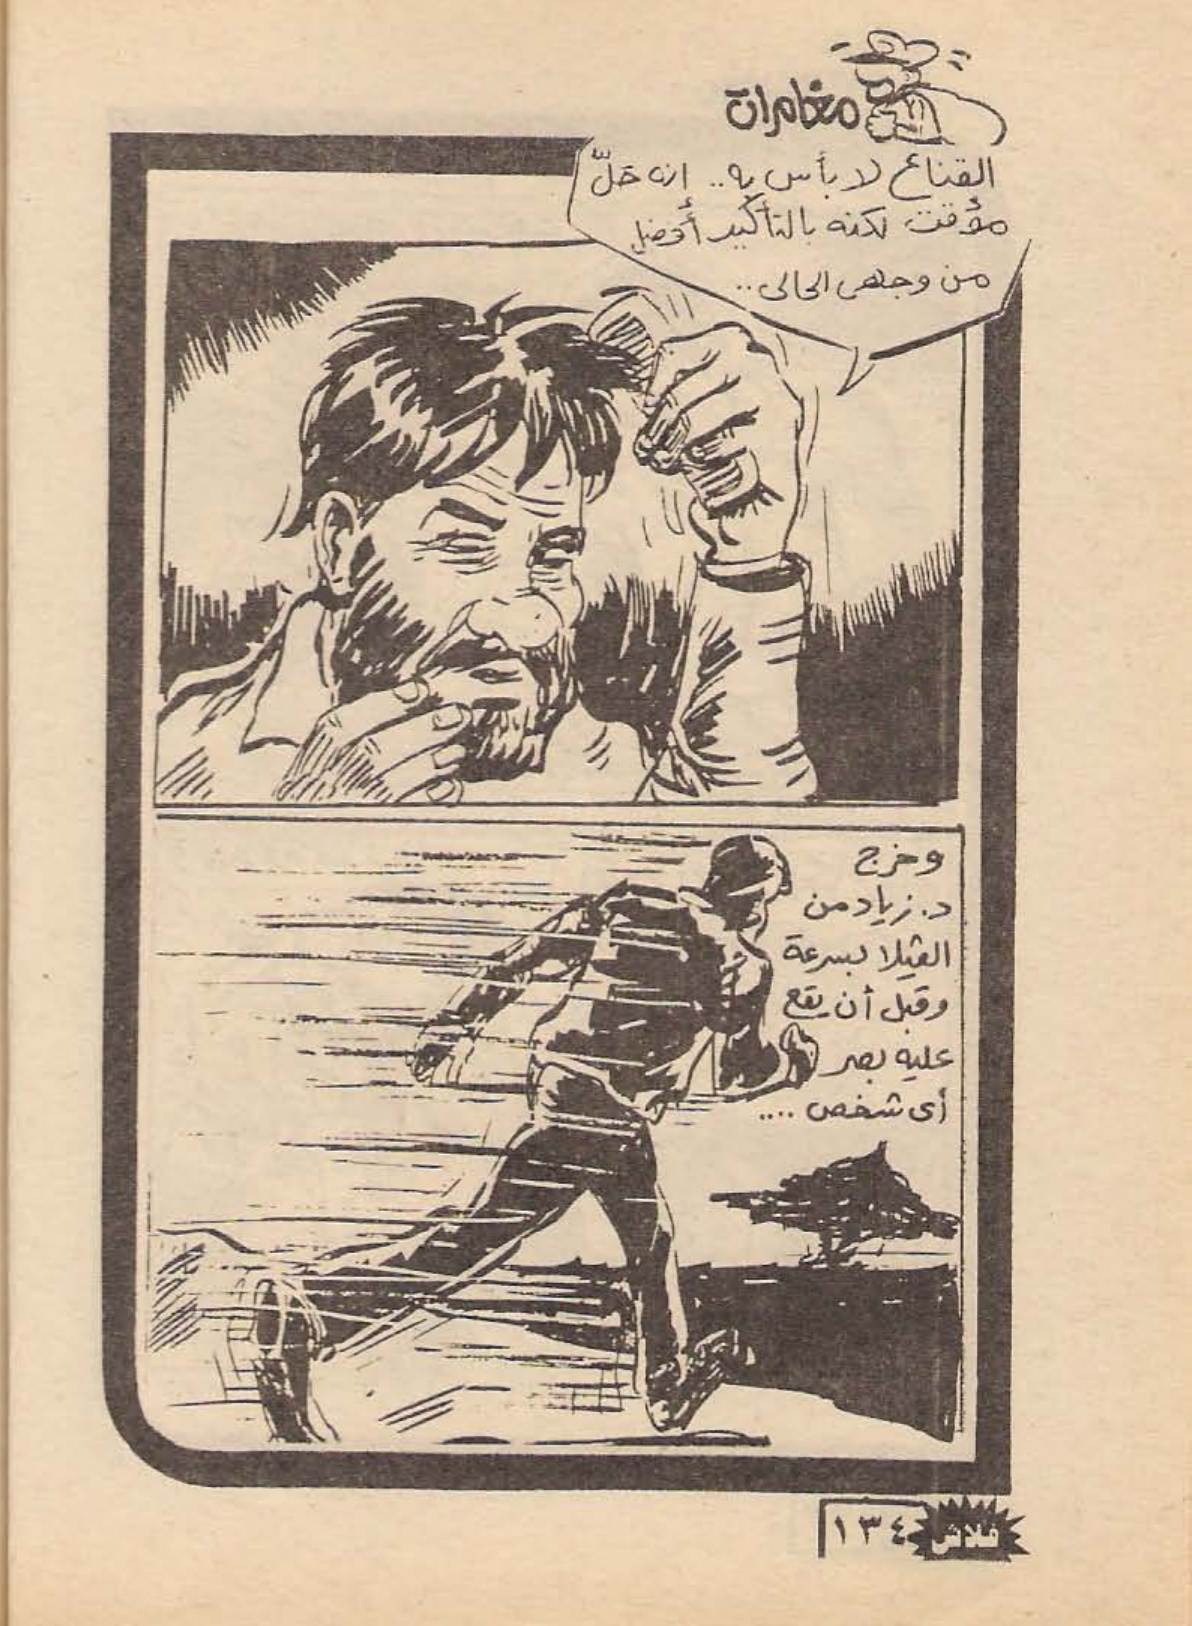 مغامرات
القناع لا بأس به.. إنه حلّ
مؤقت لكنه بالتأكيد أفضل
من وجهى الحالى..
وخرج
د. زياد من
الڤيلا بسرعة
وقبل أن يقع
عليه بصر
أى شخص ....
فلاش ١٣٤